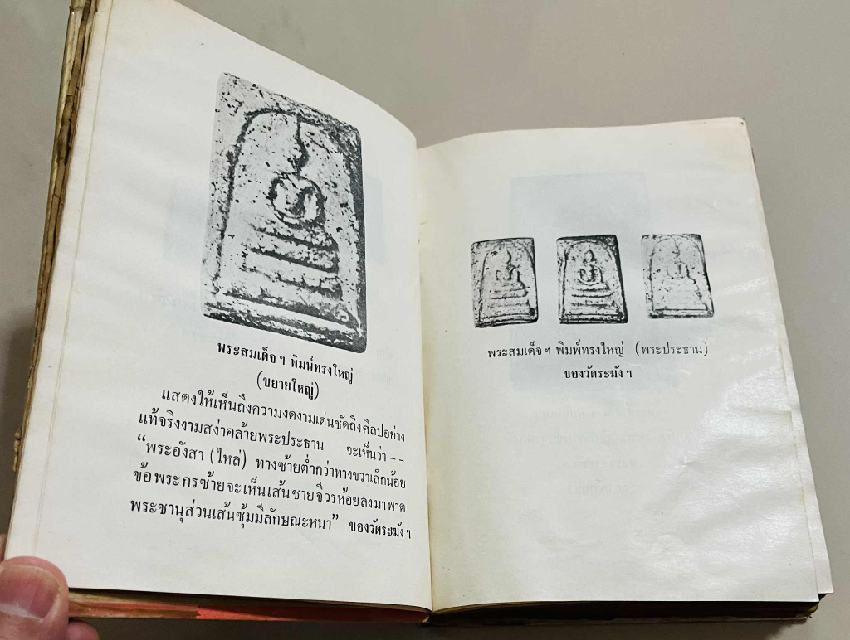 พระสมเด็จฯ พิมพ์ทรงใหญ่
(ขยายใหญ่)
แสดงให้เห็นถึงความงดงามเด่นชัดถึงศิลปอย่าง
แท้จริงงามสง่าคล้ายพระประธาน จะเห็นว่า --
“พระอังสา (ไหล่) ทางซ้ายต่ำกว่าทางขวาเล็กน้อย
ข้อพระกรซ้ายจะเห็นเส้นชายจีวรห้อยลงมาพาด
พระชานุส่วนเส้นซุ้มมีลักษณะหนา” ของวัดระฆังฯ
พระสมเด็จฯ พิมพ์ทรงใหญ่ (พระประธาน)
ของวัดระฆังฯ